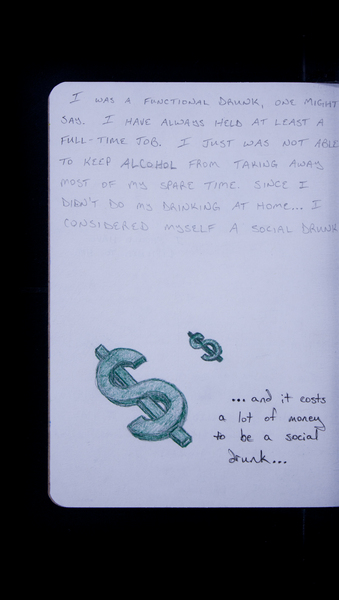 I WAS A FUNCTIONAL DRUNK, ONE MIGHT
SAY. I HAVE ALWAYS HELD AT LEAST A
FULL-TIME JOB. I JUST WAS NOT ABLE
TO KEEP ALCOHOL FROM TAKING AWAY
MOST OF MY SPARE TIME. SINCE I
DIDN'T DO MY DRINKING AT HOME... I
CONSIDERED MYSELF A SOCIAL DRUNK
$
$
... and it costs
a lot of money
to be a social
drunk...